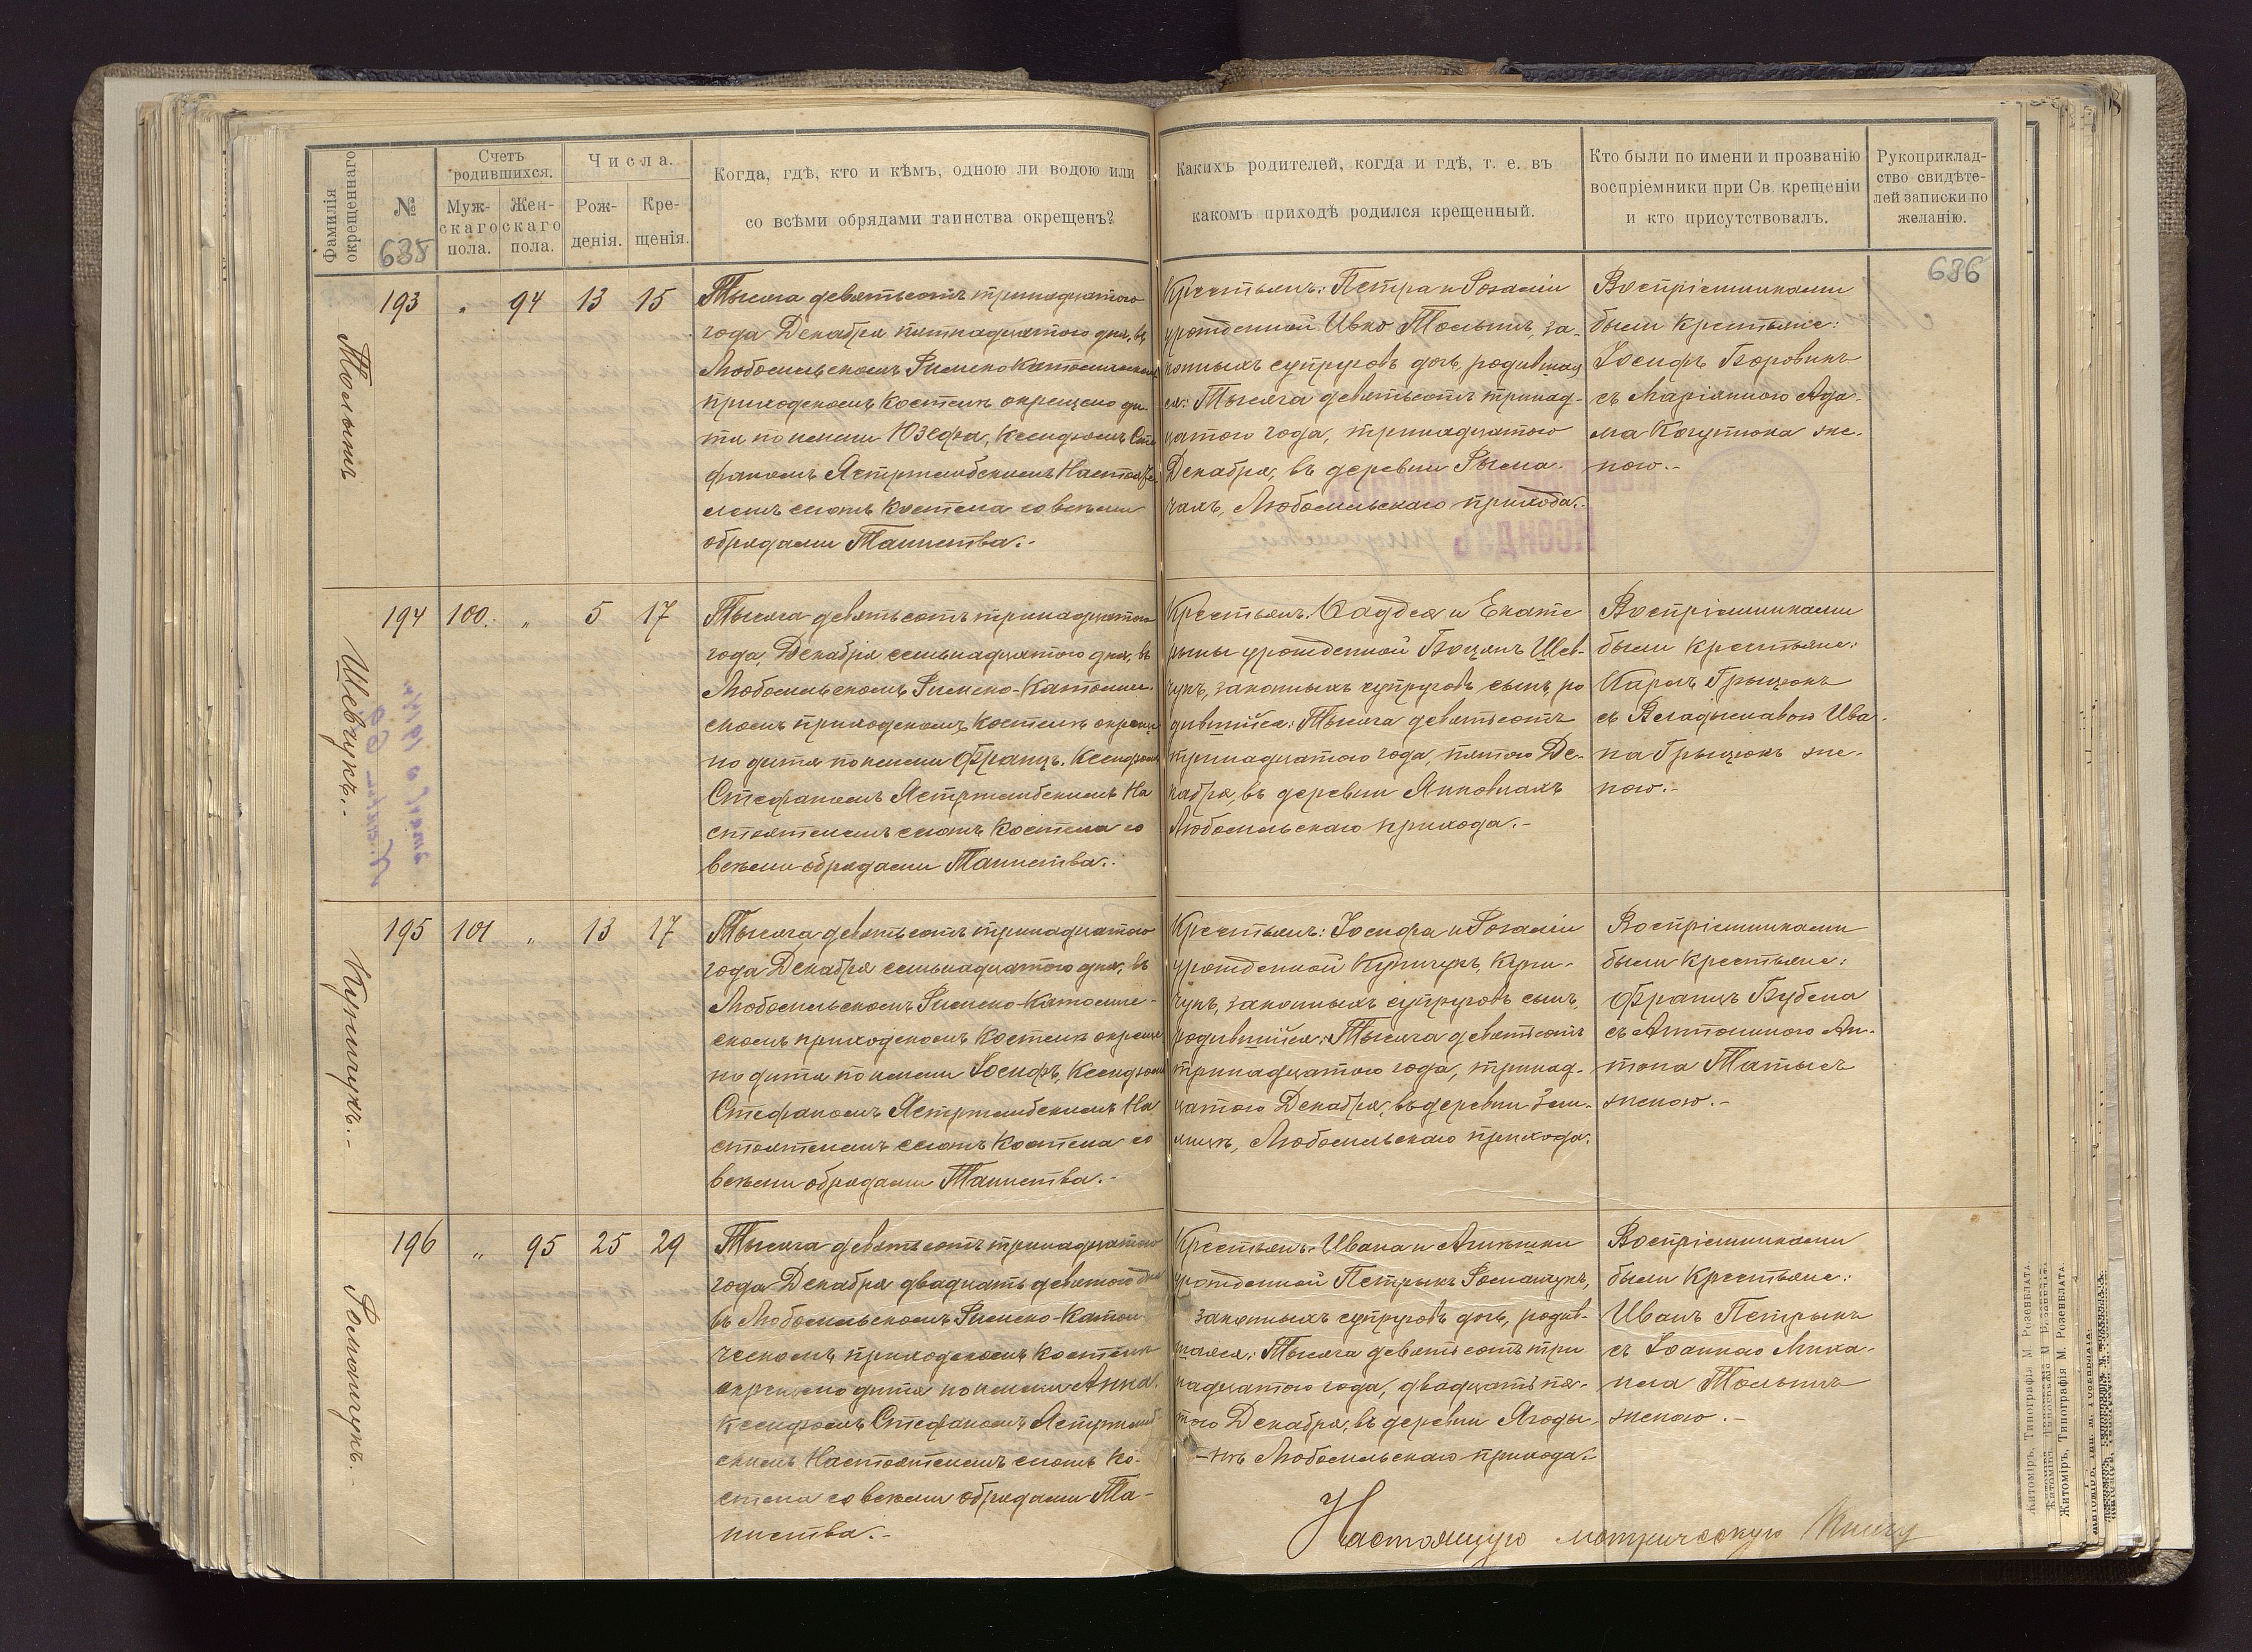 Фамилія окрещеннаго
№
635
Счетъ родившихся.
Мужскаго пола.
Женскаго пола.
Числа.
Рожденія.
Крещенія.
Когда, гдѣ, кто и кѣмъ, одною ли водою или
со всѣми обрядами таинства окрещенъ?
Какихъ родителей, когда и гдѣ, т. е. въ
какомъ приходѣ родился крещенный.
Кто были по имени и прозванію
воспріемники при Св. крещеніи
и кто присутствовалъ.
Рукоприклад-
ство свидѣте-
лей записки по
желанію.
636
193 " 94 13 15
Тысяча девятьсотъ тринадцатого
года Декабря пятнадцатого дня, въ
Любомльскомъ Римско Католическомъ
приходскомъ Костелѣ окрещено ди-
тя по имени Юзефа, Ксендзомъ Сте
фаномъ Ястржембскимъ Настояте-
лемъ сіогоъ Костела со всѣми
обрядами Таинства.-
Крестьянъ: Петра и Розаліи
урожденной Ивко Тольпихъ, за-
конныхъ супруговъ дочь, родившая
ся: Тысяча девятьсотъ тринад-
цатого года, тринадцатого
Декабря, въ деревни Рыма-
чахъ, Любомльскаго прихода.-
Воспріемниками
были Крестьяне:
Іосифъ Боровикъ
съ Маріанною Ада-
ма Когутюка же-
ною.-
194 100. " 5 17
Шевчукъ.-
Тысяча девятьсотъ тринадцатого
года, Декабря семьнадцатого дня, въ
Любомльскомъ Римско-Католиче-
скомъ приходскомъ Костелѣ окреще
но дитя по имени Францъ, Ксендзомъ
Стефаномъ Ястржембскимъ На
стоятелемъ Костела со
всѣми обрядами Таинства.-
Крестьянъ: Фаддея и Екате
рыны урожденной Боцянъ Шев-
чукъ, законныхъ супруговъ сынъ, ро
дившійся: Тысяча девятьсотъ
тринадцатого года, пятого Де-
кабря, въ деревни Янковцахъ
Любомльскаго прихода.-
Воспріемниками
были Крестьяне:
Кароль Грыцюкъ
съ Владыславою Ива-
на Грыцюкъ же-
ною.-
195 101 " 13 17
Купичукъ.-
Тысяча девятьсотъ тринадцатого
года Декабря семьнадцатого дня, въ
Любомльскомъ Римско-Католиче-
скомъ приходскомъ Костелѣ окреще
но дитя по имени Іосифъ, Ксендзомъ
Стефаномъ Ястржембскимъ На
стоятелемъ Костела со
всѣми обрядами Таинства.-
Крестьянъ: Іосифа и Розаліи
урожденной Купичукъ, Купи-
чукъ, законныхъ супруговъ сынъ,
родившійся: Тысяча девятьсотъ
тринадцатого года, тринад-
цатого Декабря, въ деревни Зем-
лицѣ, Любомльскаго прихода.
Воспріемниками
были Крестьяне:
Францъ Бубела
съ Антониною Ан-
тона Матысъ
женою.-
196 " 95 25 29
Романчукъ.-
Тысяча девятьсотъ тринадцатого
года Декабря двадцать девятого дня
въ Любомльскомъ Римско-Католи
ческомъ приходскомъ Костелѣ
окрещено дитя по имени Анна,
Ксендзомъ Стефаномъ Ястржемб-
скимъ Настоятелемъ Ко-
стела со всѣми обрядами Та-
инства.-
Крестьянъ: Ивана и Агнѣшки
урожденной Петрыкъ Романчукъ,
законныхъ супруговъ дочь, родив-
шаяся: Тысяча девятьсотъ три
надцатого года, двадцать пя-
того Декабря, въ деревни Ягоды-
нѣ Любомльскаго прихода.-
Воспріемниками
были Крестьяне:
Иванъ Петрыкъ
съ Іоанною Миха-
ила Тольпихъ
женою.-
Настоящую метрическую Книгу
Житоміръ, Типографія М. Розенблата.
Житоміръ, Типографія М. Розенблата.